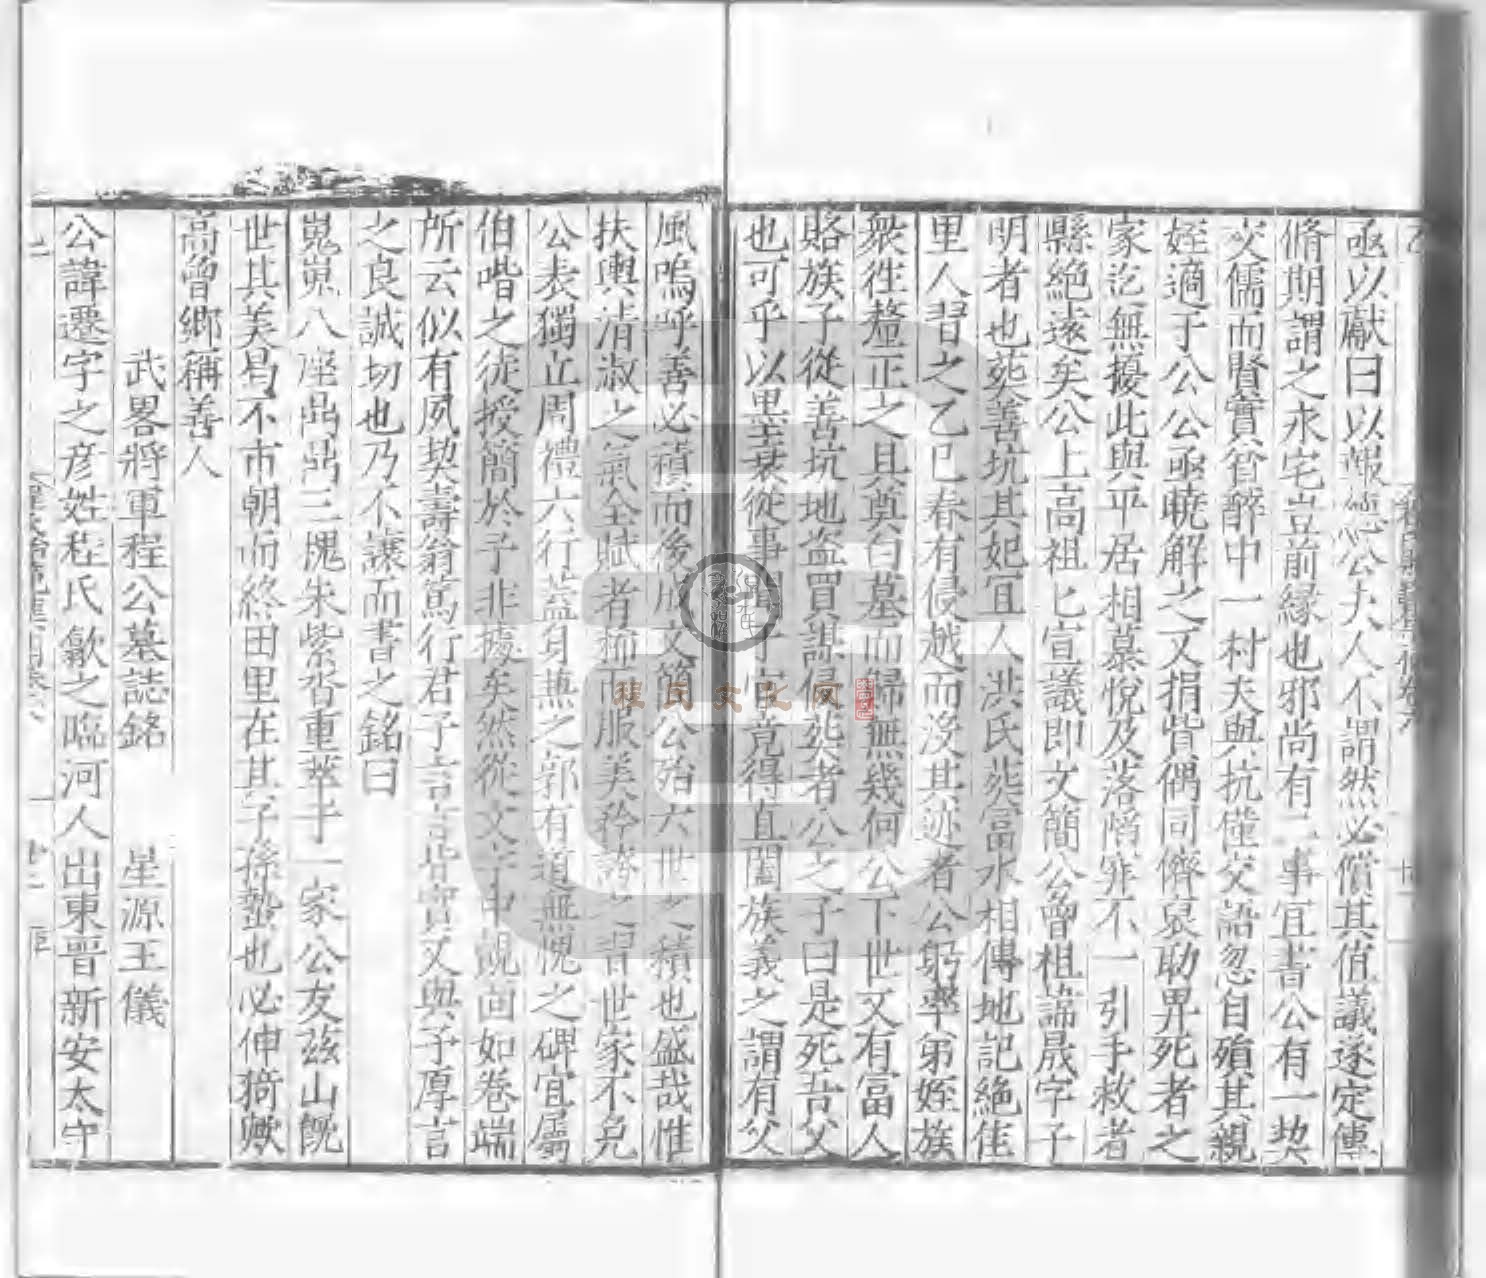 亟以獻曰以報德公夫人不謂然必償其值議遂定傳
脩期謂之永宅豈前緣也邪尚有二事宜書公有一契
交儒而賢實貧醉中一村夫與抗僅交語忽自殞其親
姪適于公公亟曉解之又捐貲偶同儕哀助畀死者之
家訖無擾此與平居相慕悅及落陷穽不一引手救者
縣絕遠矣公上高祖匕宣議即文簡公曾祖諦晟字子
明者也葬善坑其妃宜人洪氏葬富水相傳地記絕佳
里人習之乙巳春有侵越而沒其迹者公躬率弟姪族
衆徃釐正之且奠白墓而歸無幾何公下世又有冨人
賂族子從善坑地盜買謀侵葬者公之子曰是死吾父
也可乎以墨衰從事竟得直闔族義之謂有父
風嗚呼善必積而後成文簡公殆六世之積也盛哉惟
扶輿清淑之氣全賦者稀而服美矜誇之習世家不免
公表獨立周禮六行蓋身蕉之郭有道無愧之碑宜屬
伯喈之徒授簡於予非據矣然從文字中覬面如卷端
所云似有夙契壽翁篤行君子言言皆實又與予厚言
之良誠切也乃不讓而書之銘曰
嵬嵬八座㟧㟧三槐朱紫沓重萃于一家公友茲山旣
世其美曷不市朝而終田里在其子孫蟄也必伸猗歟
高曾鄉稱善人
武畧將軍程公墓誌銘 星源王儀
公諱遷字之彥姓程氏歙之臨河人出東晋新安太守
程氏文化网